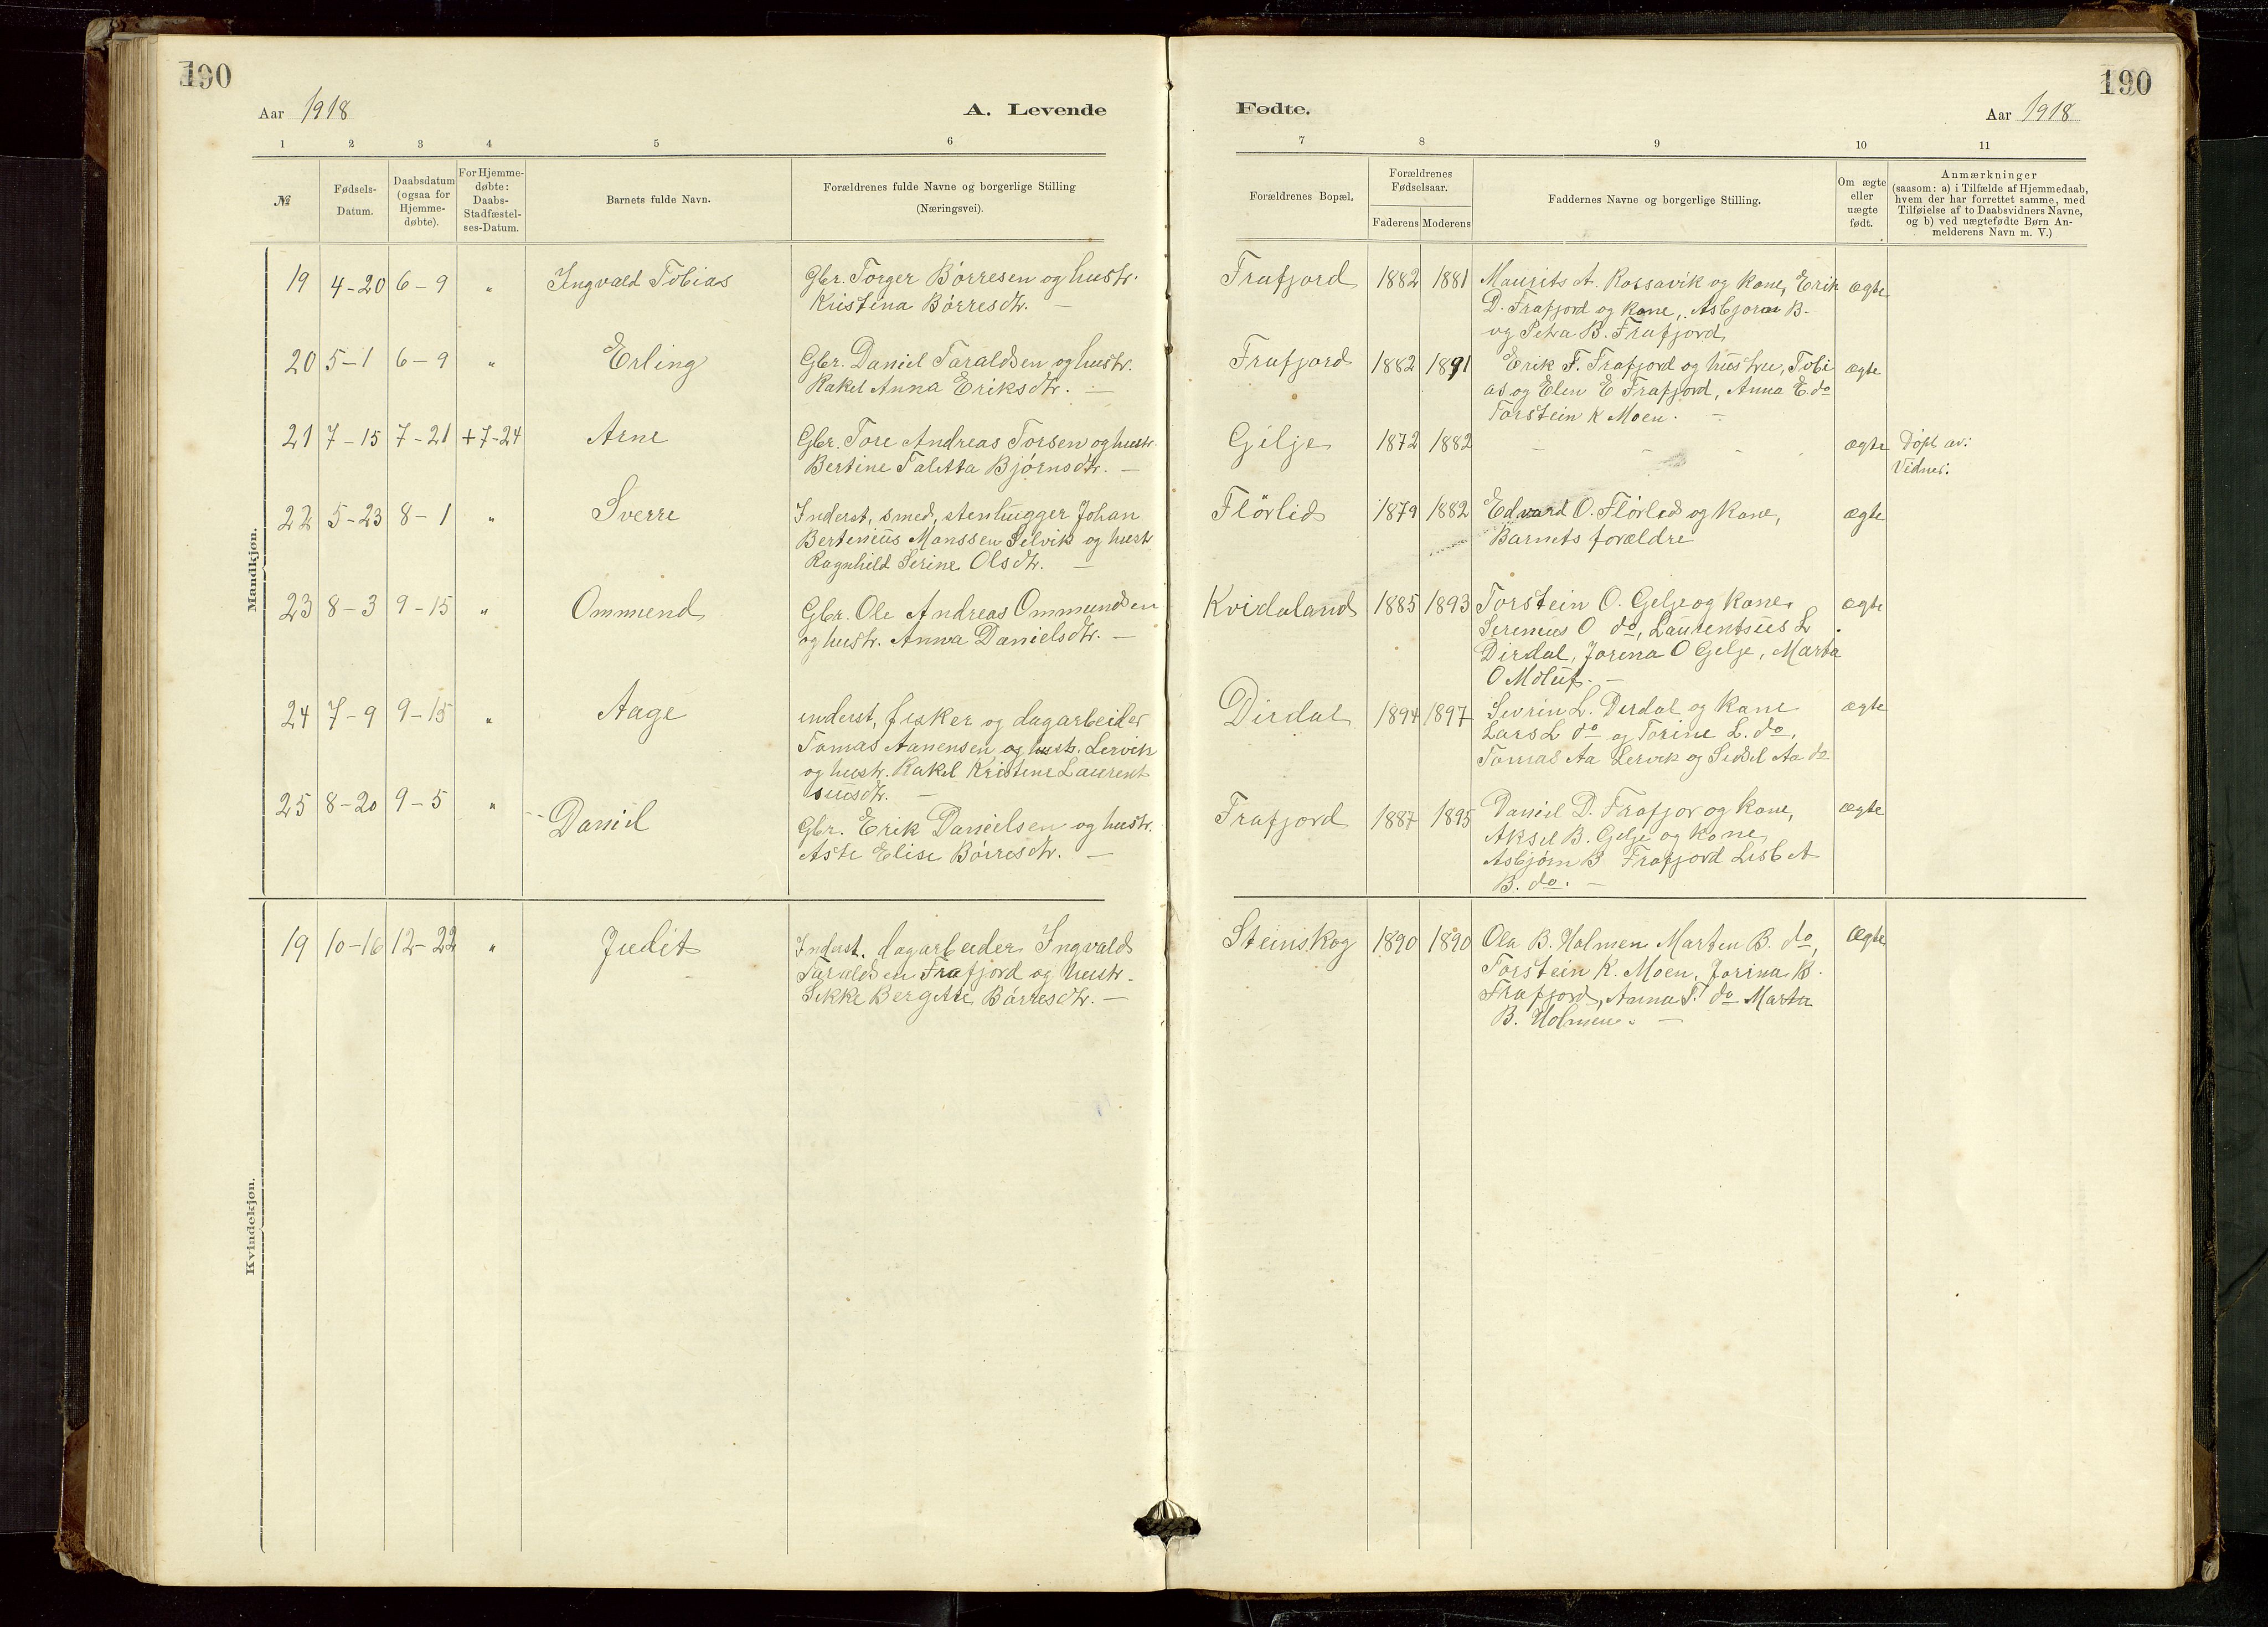 190
Aar 1918
A. Levende
1 2 3 4 5 6
№
Fødsels-
Datum.
Daabsdatum
(ogsaa for
Hjemme-
døbte).
For Hjemme-
døbte:
Daabs-
Stadfæstel-
ses-Datum.
Barnets fulde Navn.
Forældrenes fulde Navne og borgerlige Stilling
(Næringsvei).
Mandkjøn.
19 4-20 6-9 „ Ingvald Tobias Gbr. Torger Børresen og hustr.
Kristina Børresdtr. —
20 5-1 6-9 „ Erling Gbr. Daniel Taraldsen og hustr.
Rakel Anna Eriksdtr. —
21 7-15 7-21 +7-24 Arne Gbr. Tore Andreas Torsen og hustr.
Bertine Taletta Bjørnsdtr. —
22 5-23 8-1 „ Sverre Inderst, smed, stenhugger Johan
Berteniüs Monssen Selvik og hustr
Ragnhild Serine Olsdtr. —
23 8-3 9-15 „ Ommund Gbr. Ole Andreas Ommundsen
og hustr. Anna Danielsdtr. —
24 7-9 9-15 „ Aage inderst, fisker og dagarbeider
Tomas Aanensen og hustr. Lervik
og hustr. Rakel Kristine Laurent
siusdtr. —
25 8-20 9-5 „ Daniel
Gbr. Erik Danielsen og hustr.
Aste Elise Børresdtr. —
Kvindekjøn.
19 10-16 12-22 „ Judit Inderst. dagarbeider Ingvald
Taraldsen Frafjord og hustr.
Sikke Bergitte Børresdtr. —
190
Fødte.
Aar 1918
7 8 9 10 11
Forældrenes Bopæl.
Forældrenes
Fødselsaar.
Faderens Moderens
Faddernes Navne og borgerlige Stilling.
Om ægte
eller
uægte
født.
Anmærkninger
(saasom: a) i Tilfælde af Hjemmedaab,
hvem der har forrettet samme, med
Tilføielse af to Daabsvidners Navne,
og b) ved uægtefødte Børn An-
melderens Navn m. V.)
Frafjord 1882 1881 Maurits A. Rossavik og kone, Erik ægte
D. Frafjord og kone, Asbjørn B.
og Petra B. Frafjord
Frafjord 1882 1891 Erik F. Frafjord og hustru, Tobi ægte
as og Elen E Frafjord, Anna E. do
Torstein K Moen. —
Gilje 1872 1882 - - - ægte Døpt av:
Vidner:
Flörlid 1879 1882 Edvard O. Flörlid og kone, ægte
Barnets forældre
Kvidaland 1885 1893 Torstein O. Gelje og kone, ægte
Sereniüs O do, Laurentsiüs L
Dirdal, Jorina O Gelje, Marta
O Molüf. —
Dirdal 1894 1897 Sevrin L. Dirdal og kone ægte
Lars L do og Torine L. do,
Tomas Aa Lervik og Sidsel Aa do
Frafjord 1887 1895 Daniel D. Frafjor og kone, ægte
Aksel B. Gelje og kone,
Asbjørn B Frafjord Lisbet
B. do. —
Steinskog 1890 1890 Ola B. Holmen Marten B. do, ægte
Torstein K. Moen, Jorina B.
Frafjord, Anna T. do Marta
B. Holmen. —